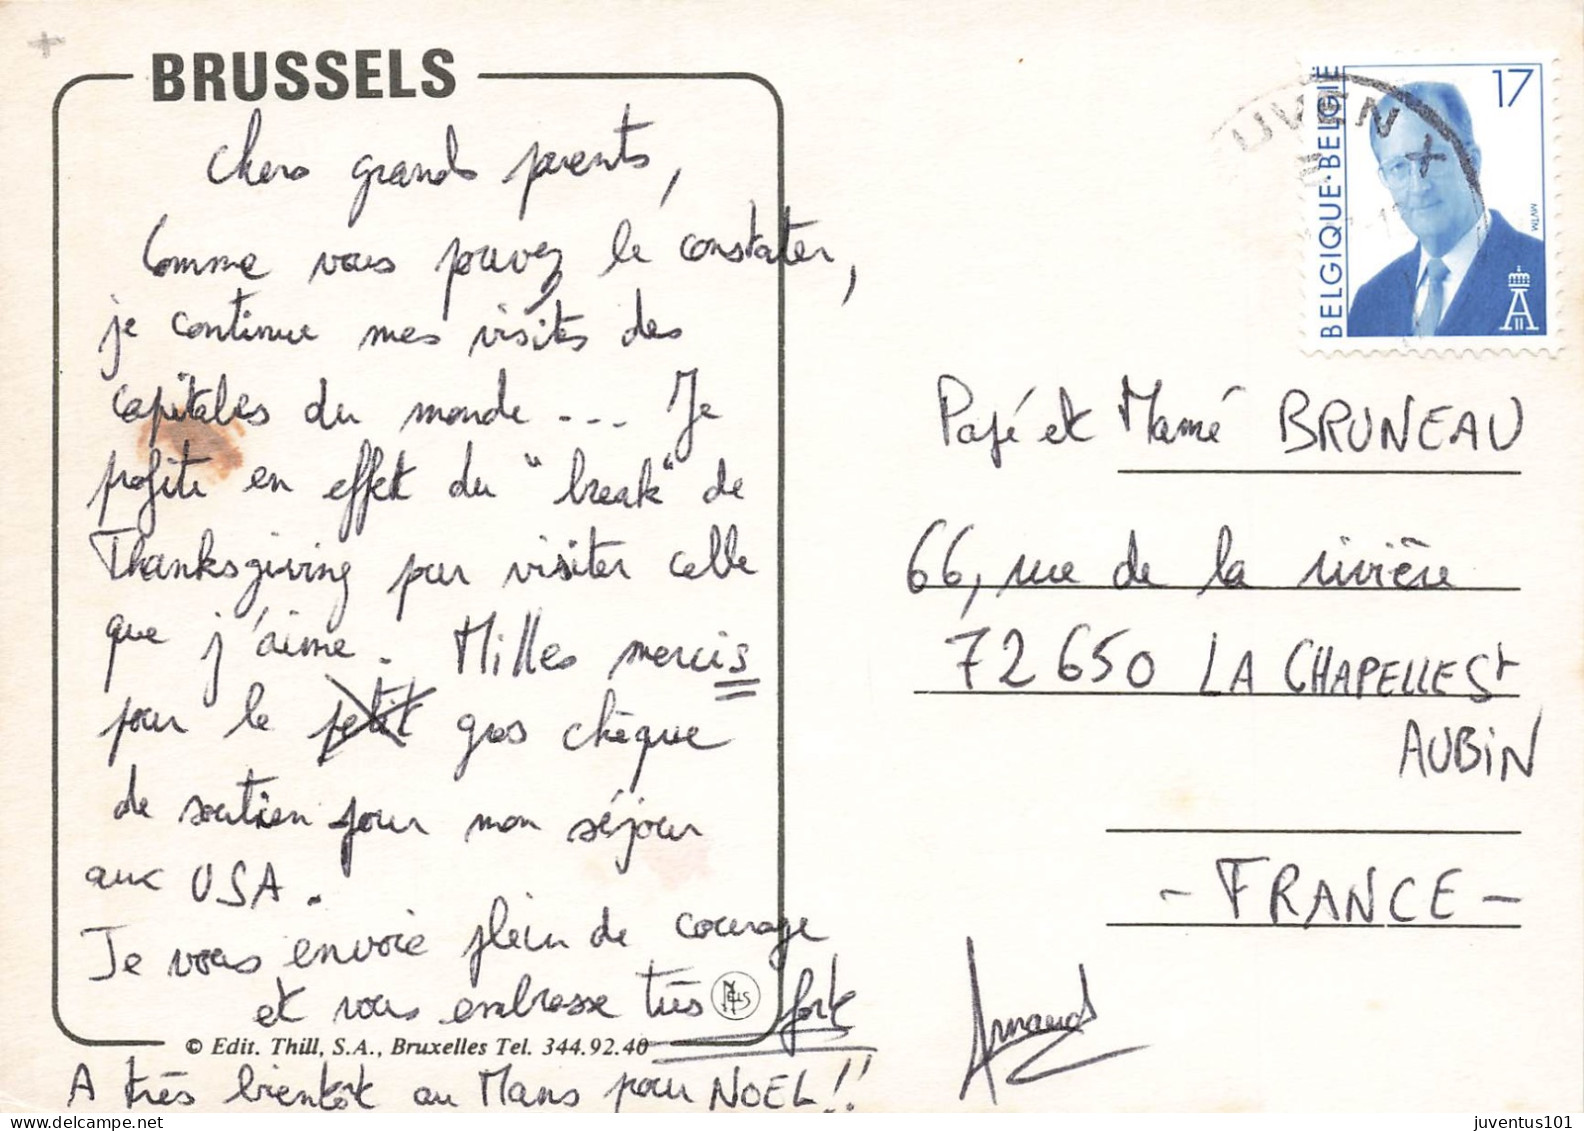 BRUSSELS
Chers grands parents,
Comme vous pouvez le constater,
je continue mes visites des
capitales du monde ... Je
profite en effet du "break" de
Thanksgiving pour visiter celle
que j'aime. Milles mercis
pour le petit gros chèque
de soutien pour mon séjour
aux USA.
Je vous envoie plein de courage
et vous embrasse très forte
NELS
© Edit. Thill, S.A., Bruxelles Tel. 344.92.40
A très bientôt au Mans pour NOEL !!
Arnaud
17
BELGIQUE·BELGIË
MVTM
UVEN
Papé et Mamé BRUNEAU
66, rue de la rivière
72650 LA CHAPELLE St
AUBIN
- FRANCE -
juventus101